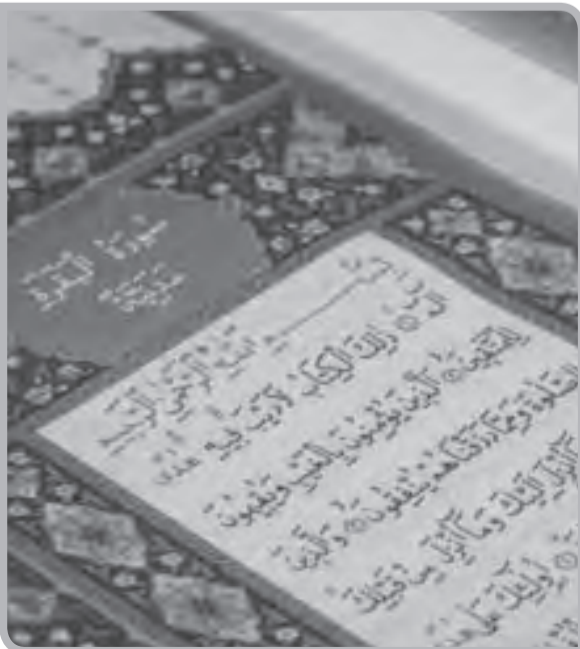 سُورَةُ الْبَقَرَةِ
بِسْمِ اللَّهِ الرَّحْمَٰنِ الرَّحِيمِ
الم ذَٰلِكَ الْكِتَابُ لَا رَيْبَ فِيهِ هُدًى
لِلْمُتَّقِينَ الَّذِينَ يُؤْمِنُونَ بِالْغَيْبِ وَيُقِيمُونَ
الصَّلَاةَ وَمِمَّا رَزَقْنَاهُمْ يُنْفِقُونَ وَالَّذِينَ
أُنْزِلَ إِلَيْكَ وَمَا أُنْزِلَ مِنْ قَبْلِكَ
أُولَٰئِكَ عَلَىٰ هُدًى